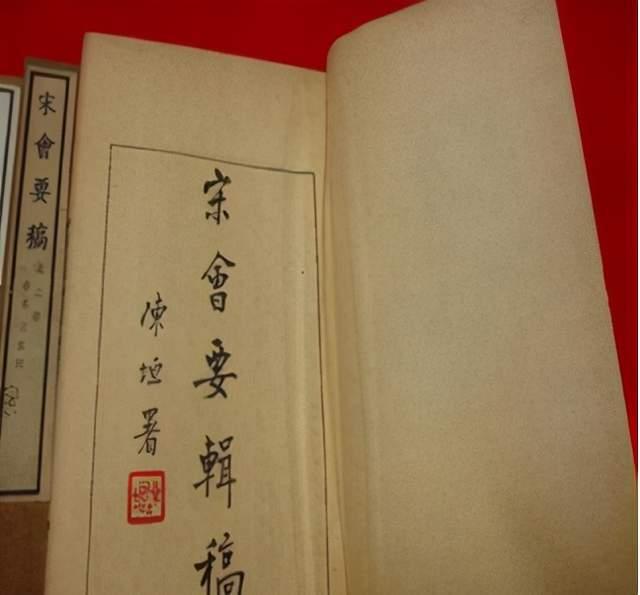 宋會要輯稿
陳垣署
宋會要稿